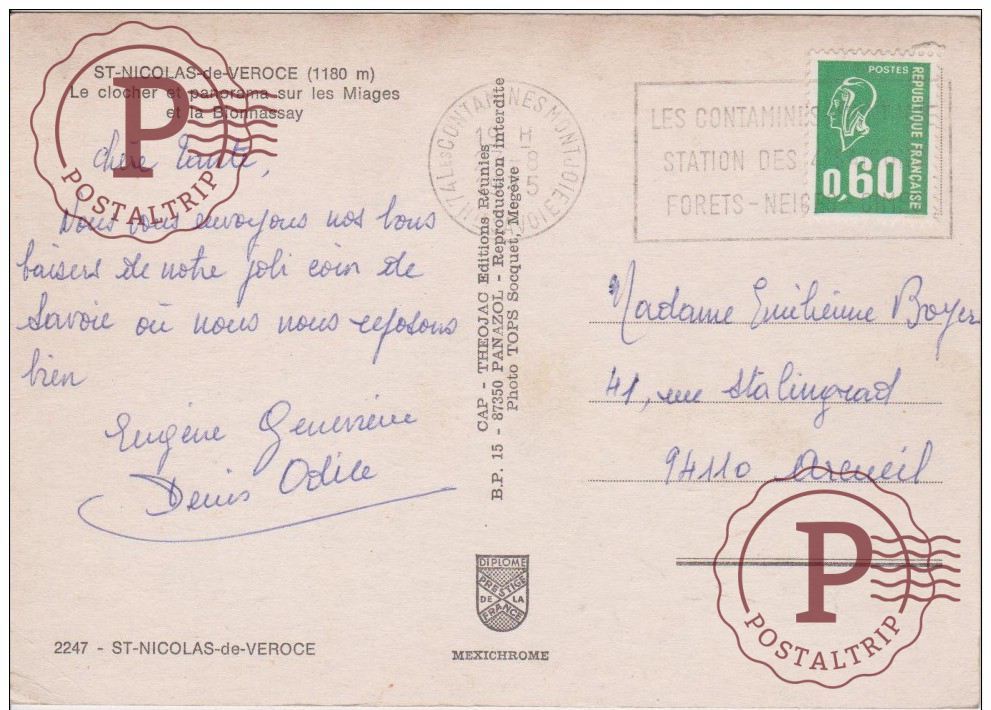 ST-NICOLAS-de-VEROCE (1180 m)
Le clocher et panorama sur les Miages
et la Bionnassay
Chère Tante,
Nous vous envoyons nos bons
baisers de notre joli coin de
Savoie où nous nous reposons
bien
Eugène Geneviève
Denis Odile
2247 - ST-NICOLAS-de-VEROCE
CAP - THEOJAC Editions Réunies
B.P. 15 - 87350 PANAZOL - Reproduction interdite
Photo TOPS Socquet, Megève
DIPLOME
PRESTIGE
DE LA
FRANCE
MEXICHROME
74 LES CONTAMINES MONTJOIE
SAVOIE
LES CONTAMINES
STATION DES
FORETS - NEIG
POSTES
REPUBLIQUE FRANÇAISE
0,60
Madame Emilienne Boyer
41, rue Stalingrad
94110 Arcueil
P
POSTALTRIP
P
POSTALTRIP